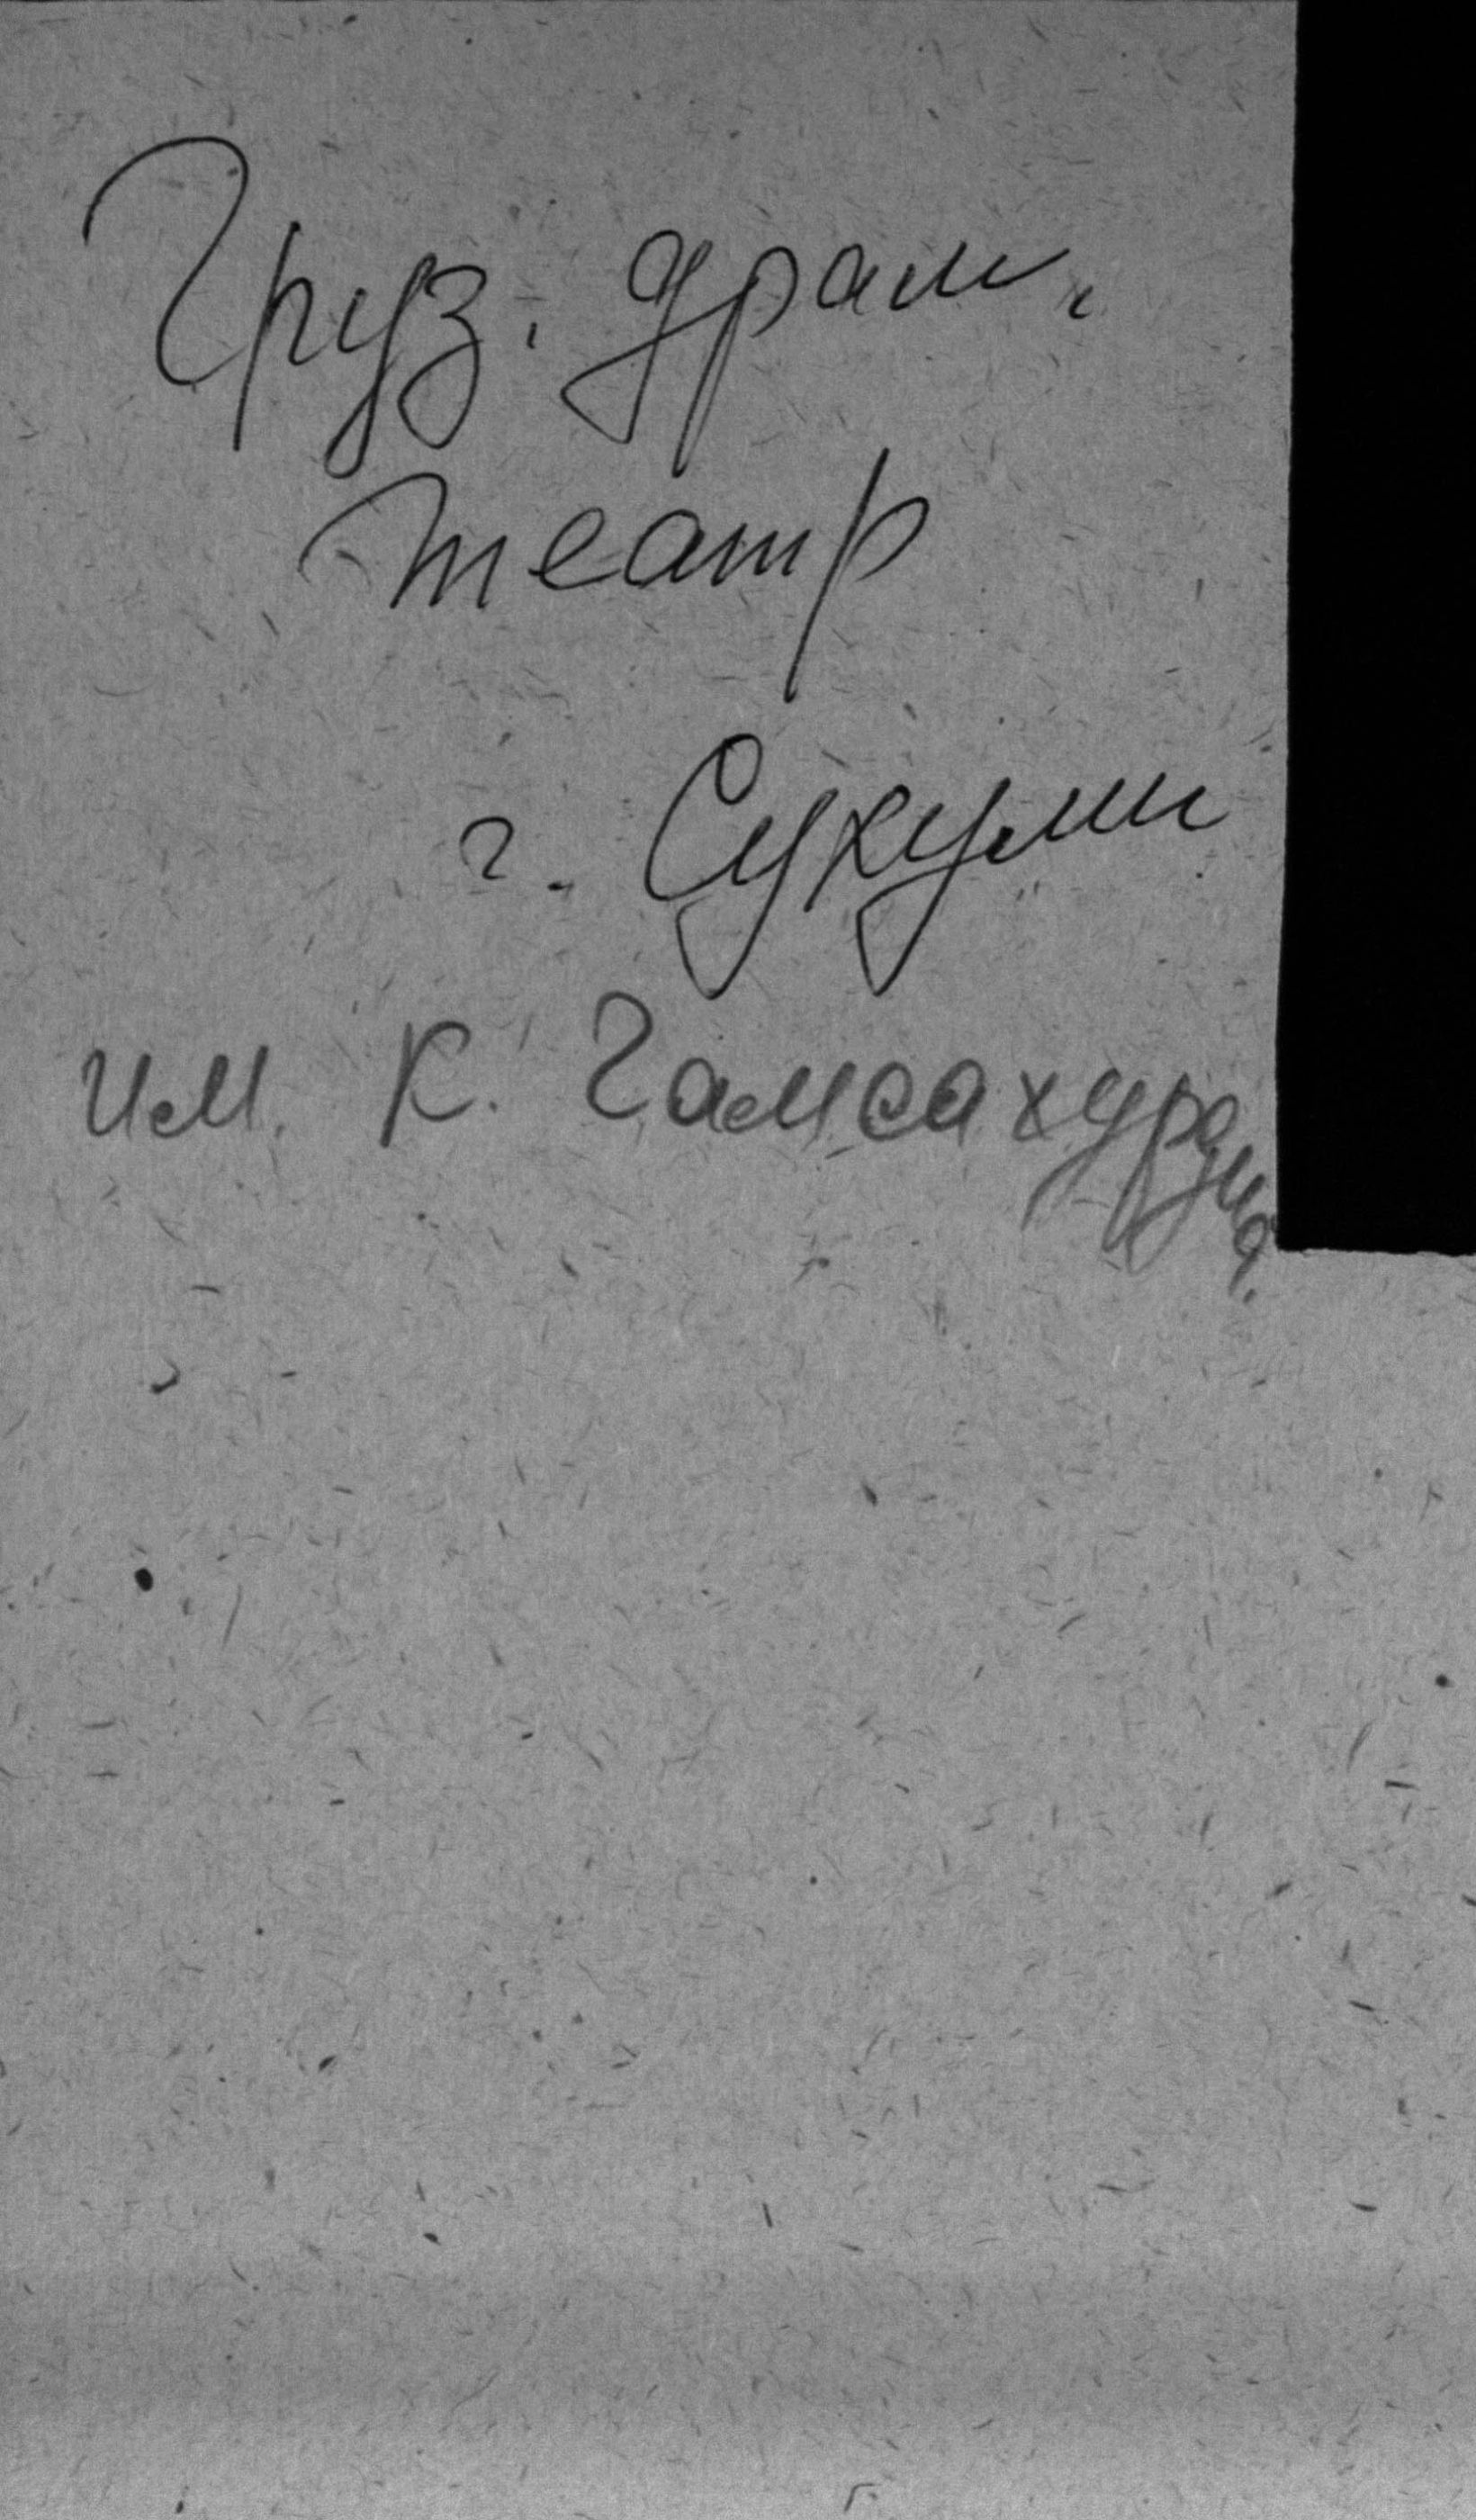 Груз. драм.
театр
г. Сухуми
им. К. Гамсахурдиа.